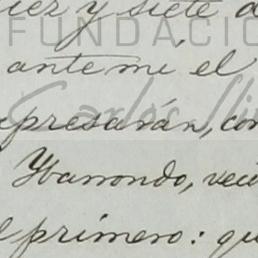 diez y siete d
FUNDACIÓ
ante mí, el
Carlos Slim
xpresarán, con
Ybarrondo, veci
el primero: qu